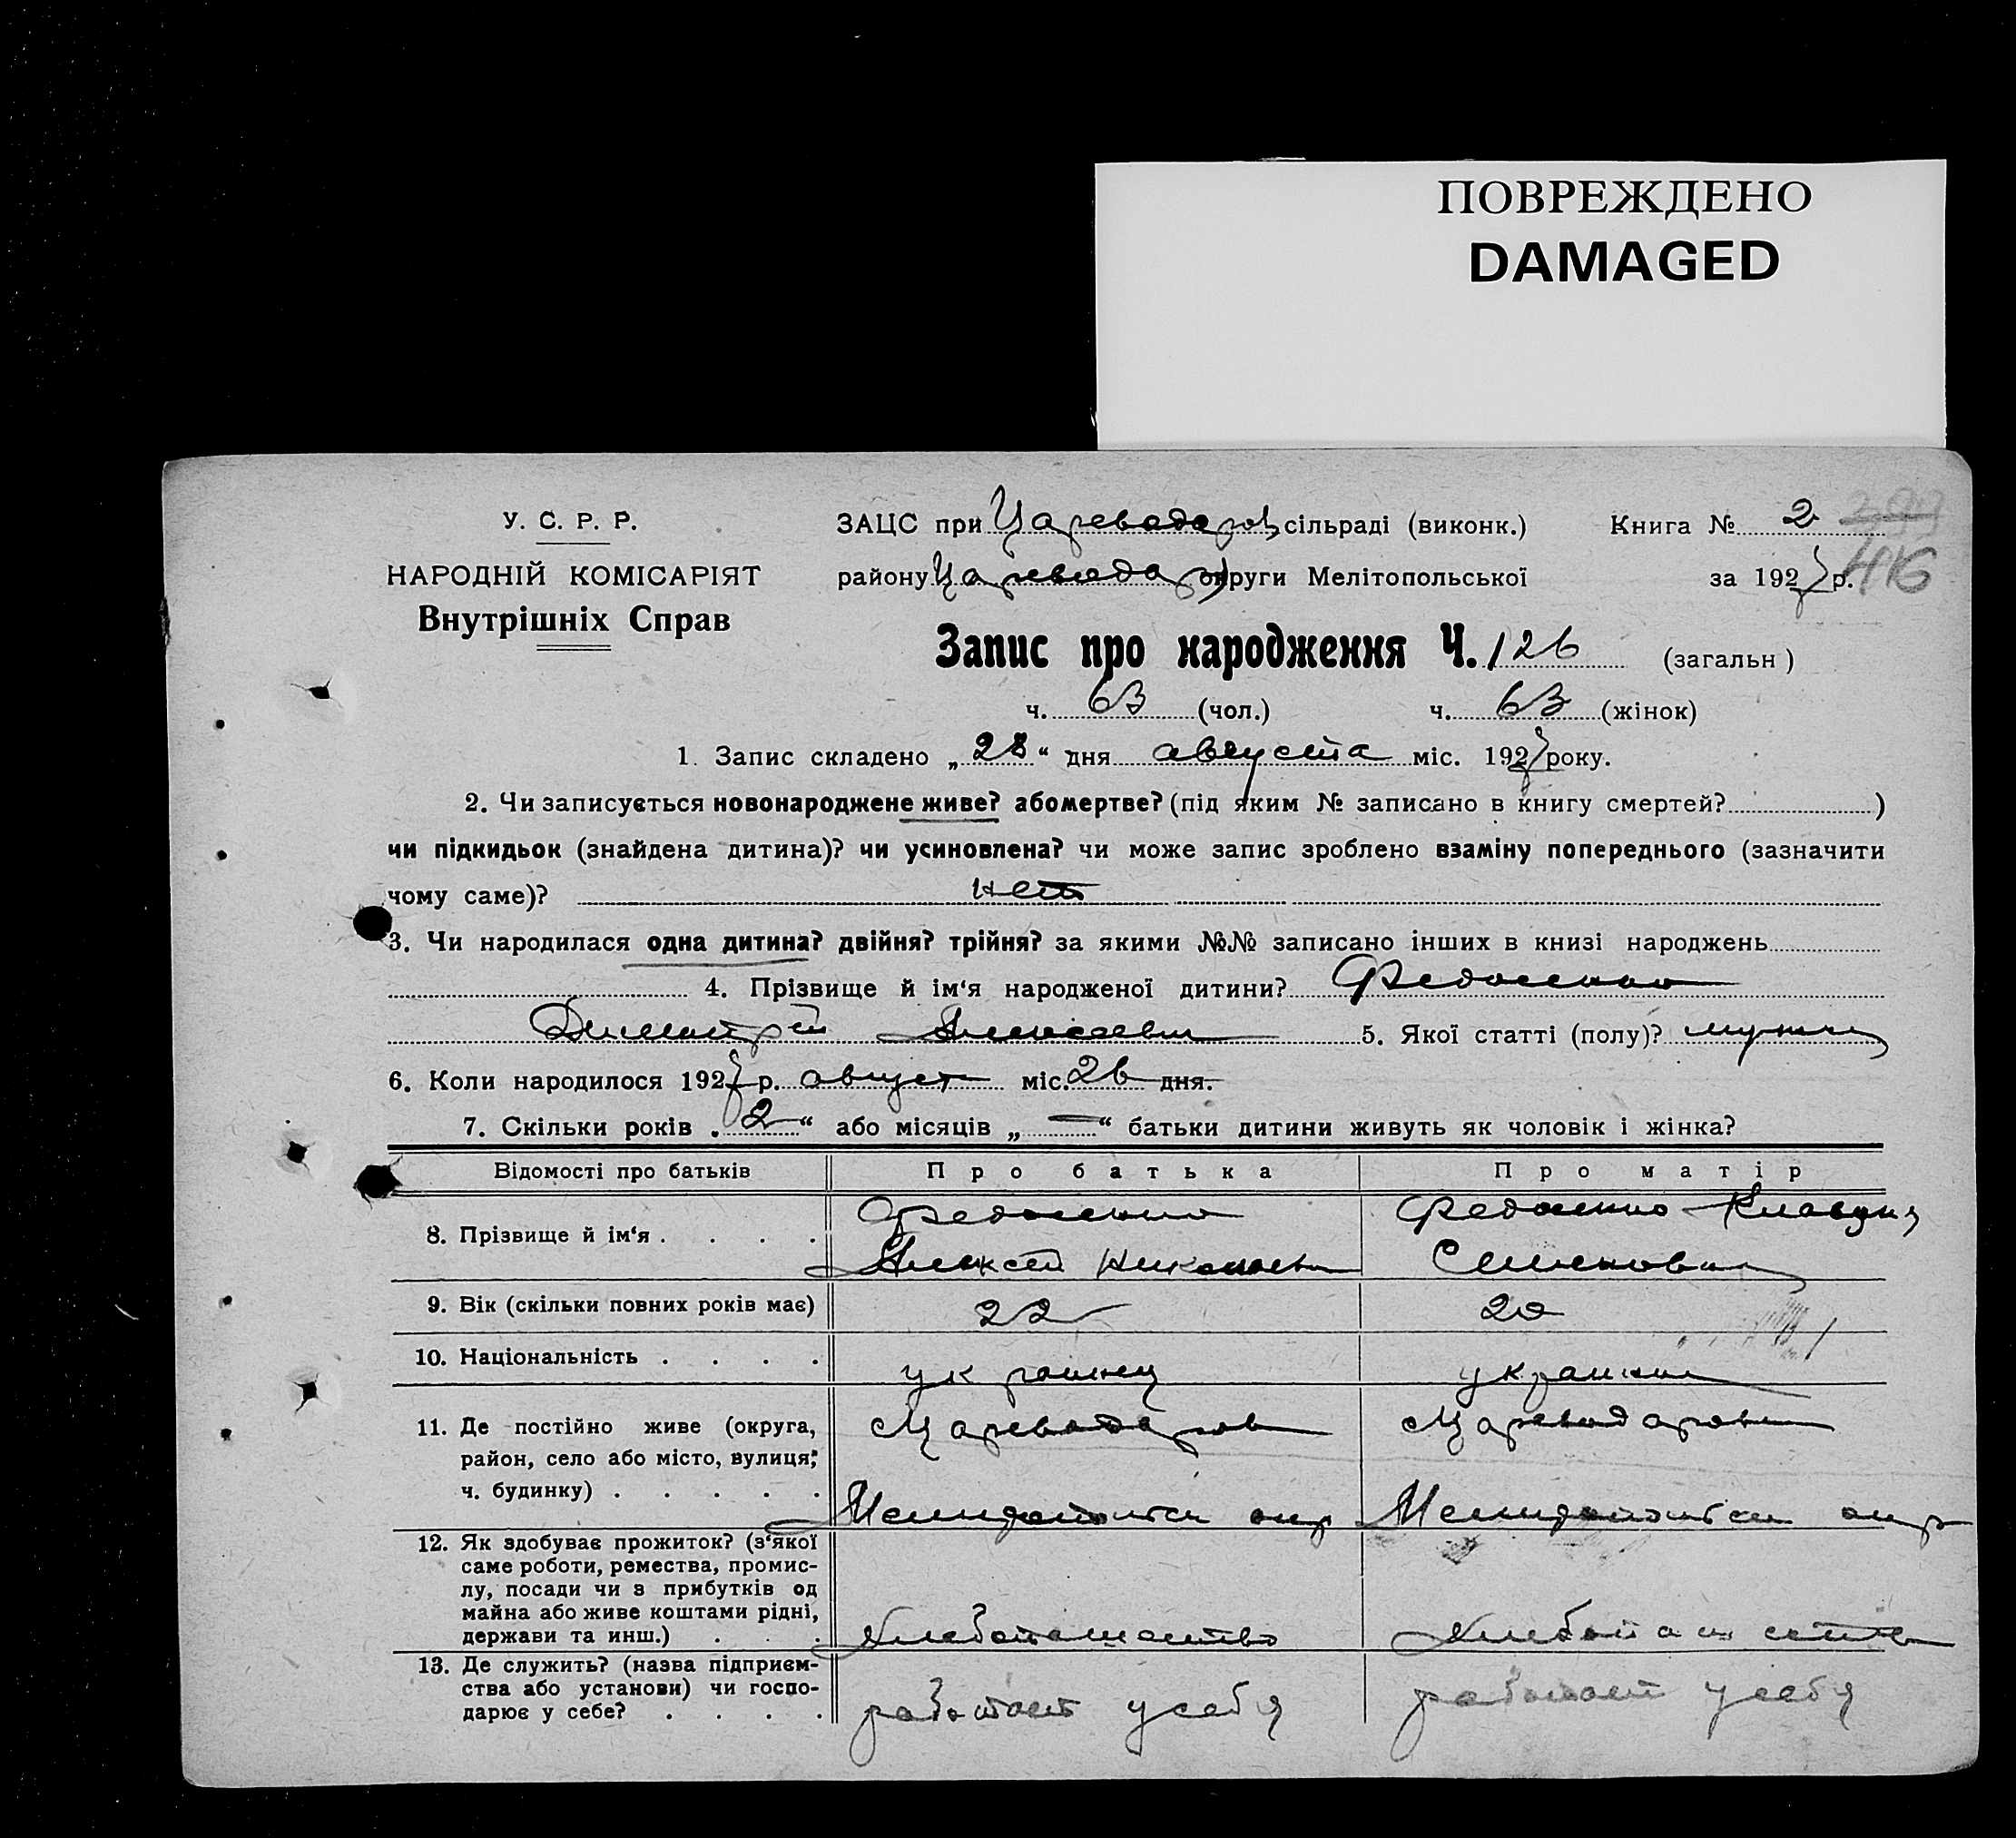 ПОВРЕЖДЕНО
DAMAGED
У. С. Р. Р.
НАРОДНІЙ КОМІСАРІЯТ
Внутрішніх Справ
ЗАЦС при Цареводаров сільраді (виконк.) Книга № 2
району Цареводар округи Мелітопольської за 1927 р. 416
Запис про народження Ч. 126 (загальн )
ч. 63 (чол.) ч. 63 (жінок)
1. Запис складено „28“ дня августа міс. 1927 року.
2. Чи записується новонароджене живе? або мертве? (під яким № записано в книгу смертей? )
чи підкидьок (знайдена дитина)? чи усиновлена? чи може запис зроблено взаміну попереднього (зазначити
чому саме)? нет
3. Чи народилася одна дитина? двійня? трійня? за якими №№ записано інших в книзі народжень
4. Прізвище й ім‘я народженої дитини?
Димитрий Алексеевич 5. Якої статті (полу)? мужск
6. Коли народилося 1927 р. август міс. 26 дня.
7. Скільки років „2“ або місяців „—“ батьки дитини живуть як чоловік і жінка?
Відомості про батьків Про батька Про матір
8. Прізвище й ім‘я . . . . Клавдия
Алексей Николаевич Семеновна
9. Вік (скільки повних років має) 22 20
10. Національність . . . . украинец украинка
11. Де постійно живе (округа, Цареводаровка Цареводаровка
район, село або місто, вулиця,
ч. будинку) . . . . . Мелитопольск окр Мелитопольск окр
12. Як здобуває прожиток? (з‘якої
саме роботи, ремества, промис-
лу, посади чи з прибутків од
майна або живе коштами рідні,
держави та инш.) . . . Хлебопашество Хлебопашество
13. Де служить? (назва підприєм-
ства або установи) чи госпо-
дарює у себе? . . . . работает у себя работает у себя